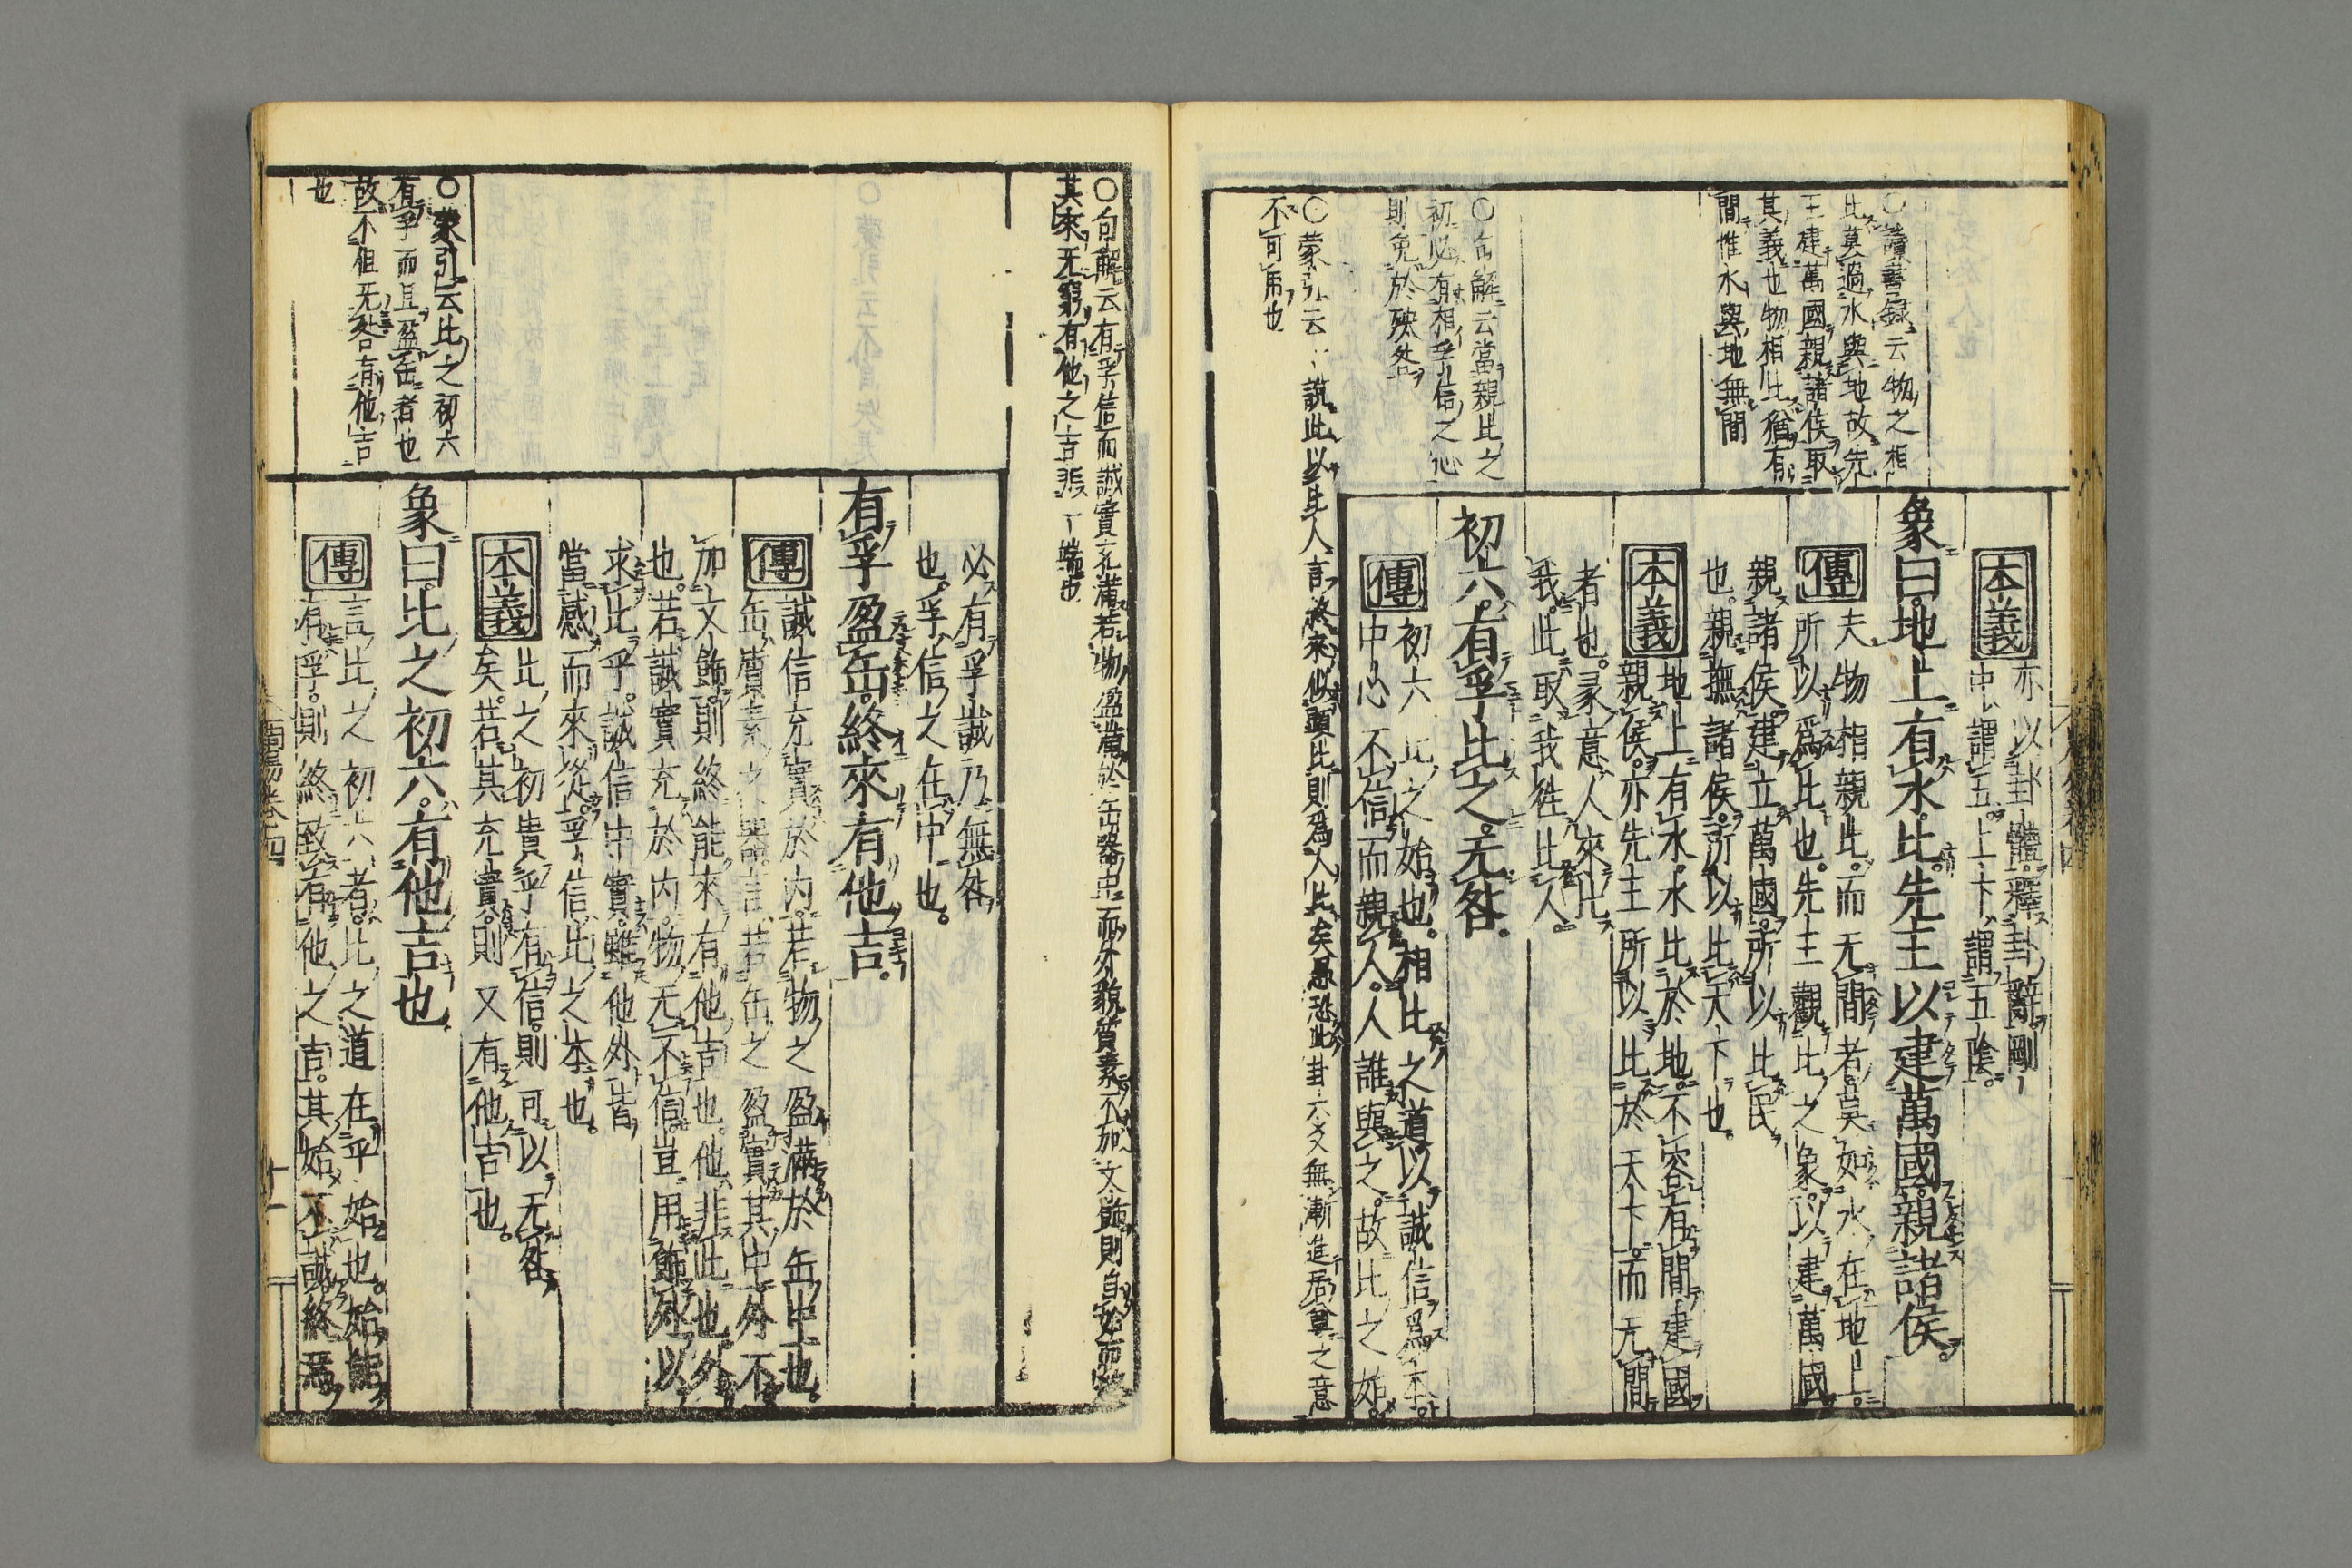 ○讀書録云物之相
比莫過水與地故先
王建萬國親諸侯取
其義也物相比猶有
間惟水與地無間
○句解云當親比之
初必有相孚信之心
則免於殃咎
本義
亦以卦體釋卦辭剛
中謂五上下謂五陰
象曰地上有水比先王以建萬國親諸侯
傳
夫物相親比而无間者莫如水在地上
所以爲比也先王觀比之象以建萬國
親諸侯建立萬國所以比民
也親撫諸侯所以比天下也
本義
地上有水水比於地不容有間建國
親侯亦先王所以比於天下而无間
者也彖意人來比
我此取我往比人
初六有孚比之无咎
傳
初六比之始也相比之道以誠信爲本
中心不信而親人人誰與之故比之始
○蒙引云
不可用也
○句解云有孚信而誠實充滿若物盈滿於缶器中而外貌質素不加文飾則自始而終
其來无窮有他之吉非一端也
必有孚誠乃無咎
也孚信之在中也
有孚盈缶終來有他吉
傳
誠信充實於内若物之盈滿於缶中也
缶質素之器言若缶之盈實其中外不
加文飾則終能來有他吉也他非此也外
也若誠實充於内物无不信豈用飾外以
求比乎誠信中實雖他外皆
當感而來從孚信比之本也
本義
比之初貴乎有信則可以无咎
矣若其充實則又有他吉也
象曰比之初六有他吉也
傳
言比之初六者比之道在乎始也始能
有孚則終致有他之吉其始不誠終焉
○蒙引云比之初六
有孚而且盈缶者也
故不但无咎有他吉
也
十一